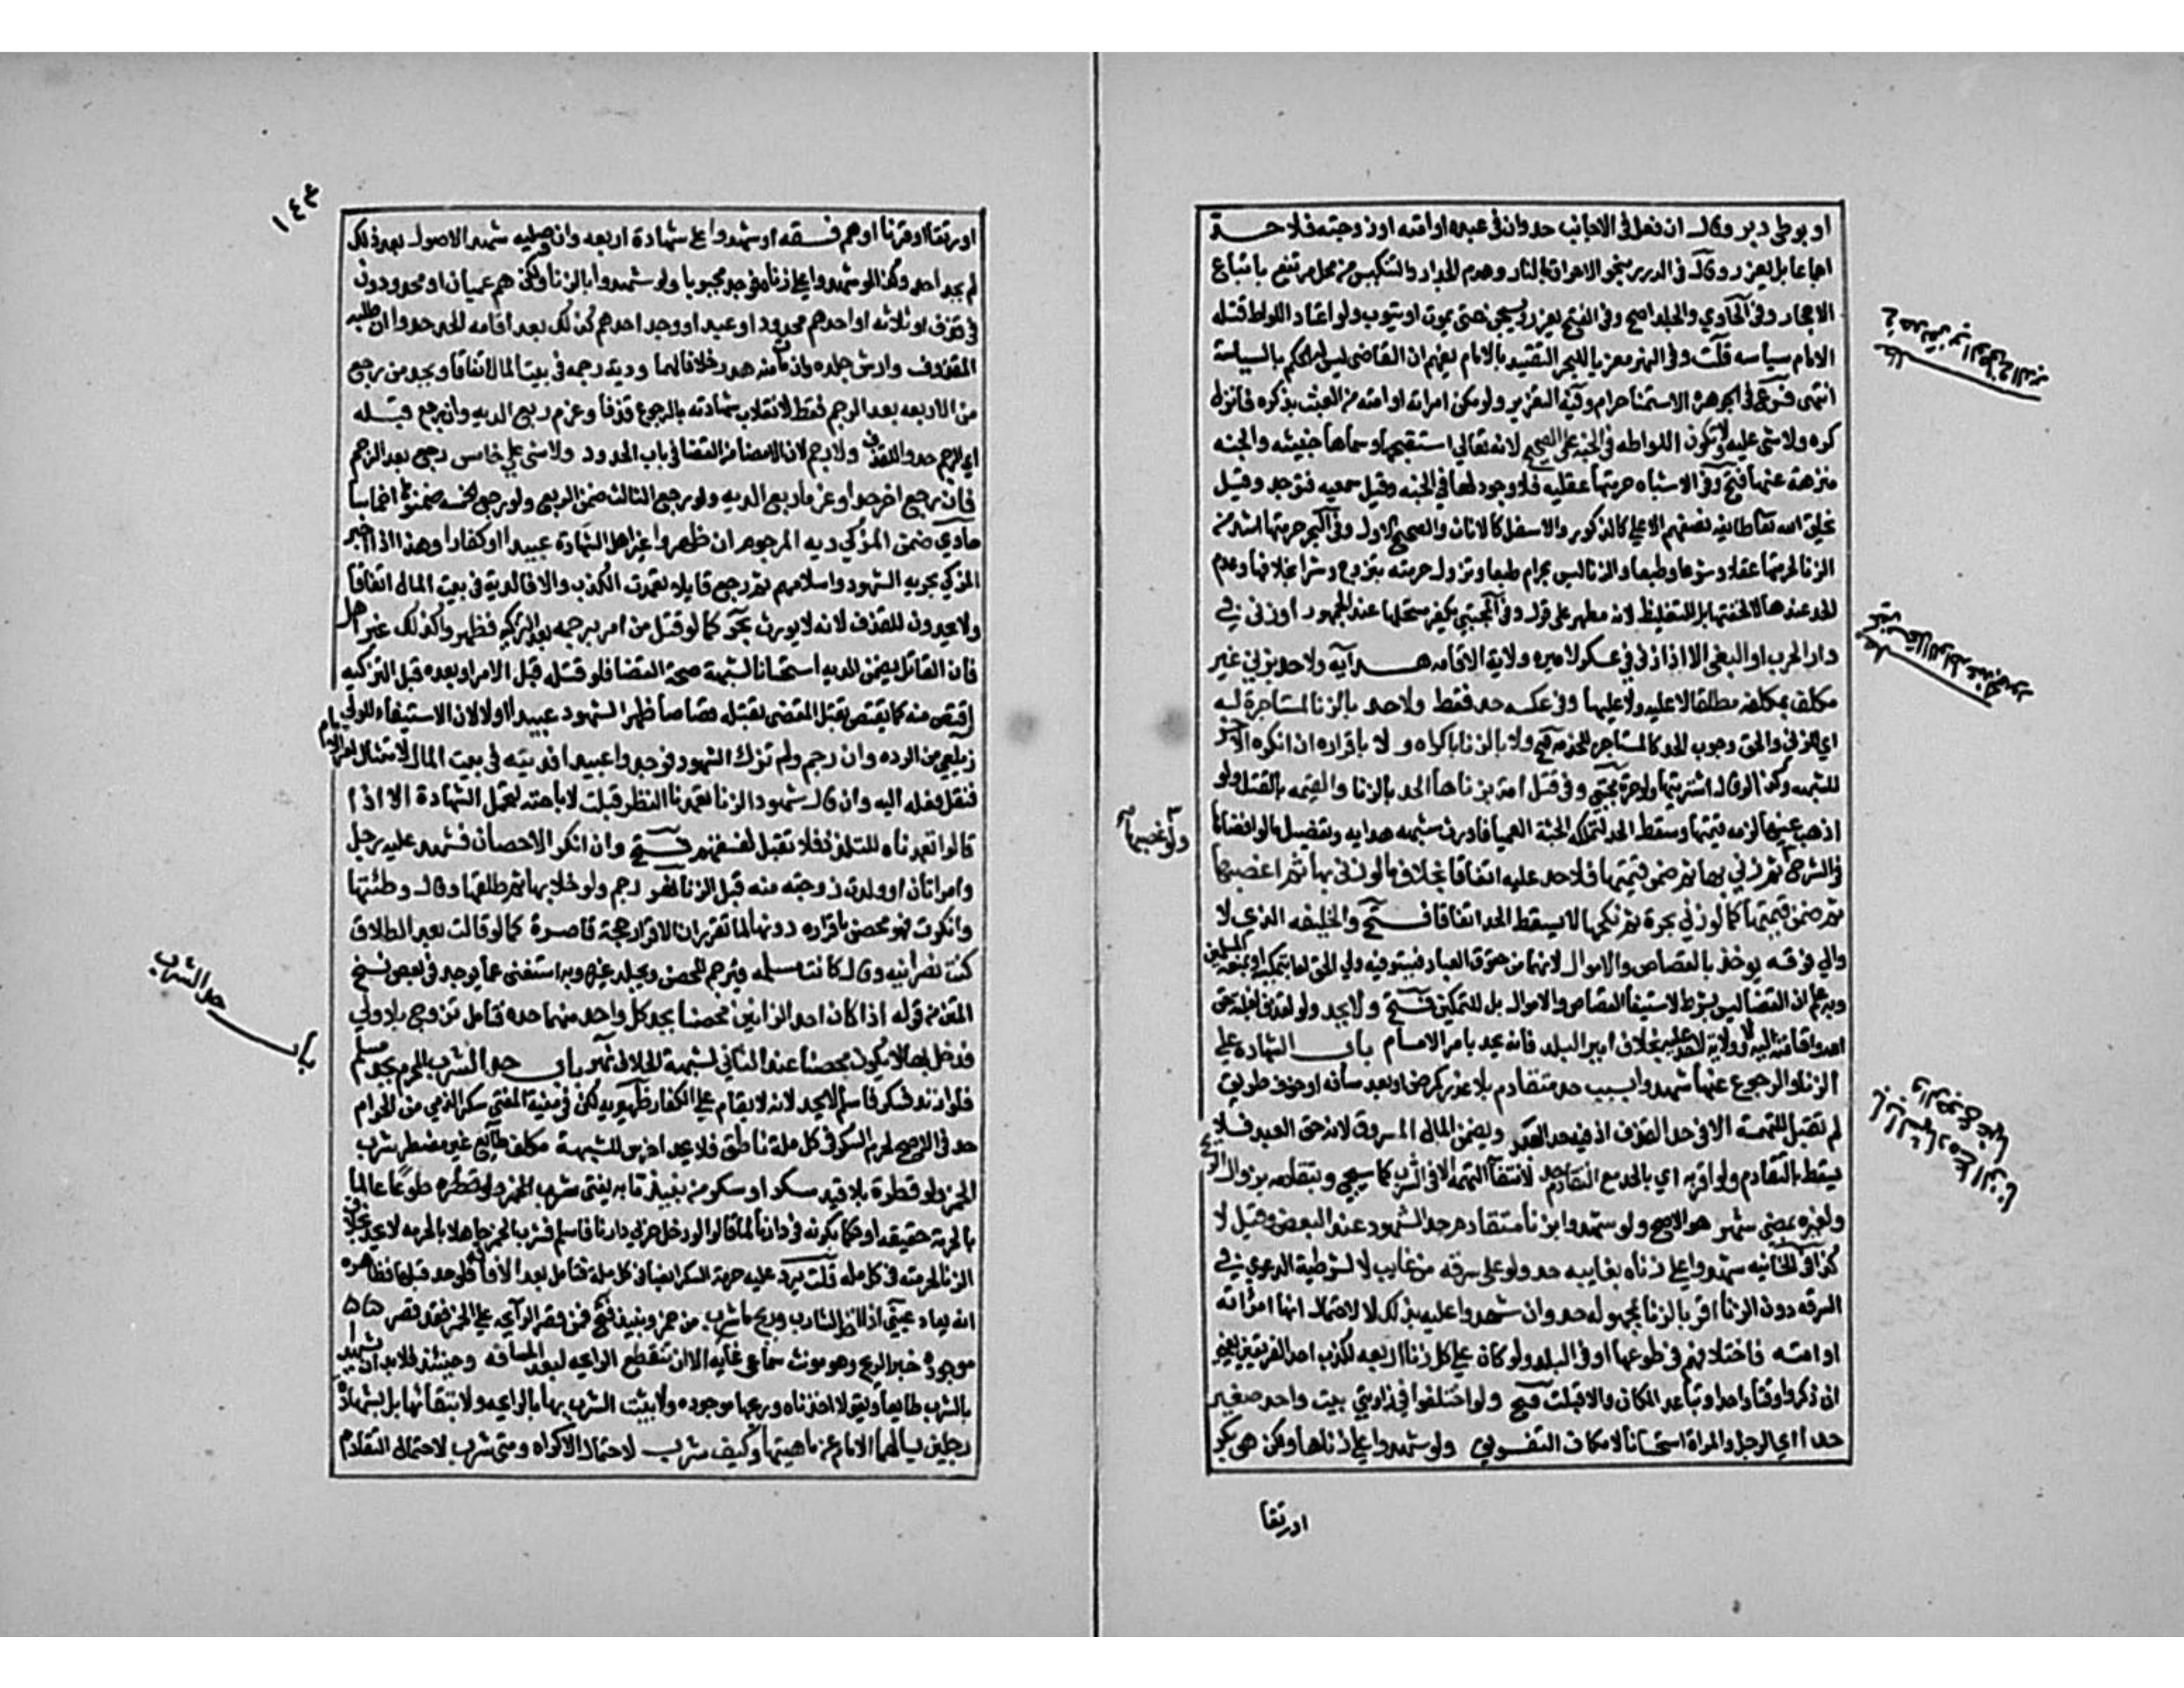 او بوطئ دبر وقال ان فعل في الاجانب حد وان في عبده او امته او زوجته فلا حد
اجماعا بل يعزر وقال في الدرر بنحو الاحراق بالنار وهدم الجدار والتنكيس من محل مرتفع باتباع
الاحجار وفي الحاوي والجلد اصح وفي الفتح يعزر ويسجن حتى يموت او يتوب ولو اعتاد اللواط قتله
الامام سياسه قلت وفي النهر معزيا للبحر التقييد بالامام يفهم ان القاضي ليس له الحكم بالسياسة
انتهى فرع في الجوهرة الاستمنا حرام وفيه التعزير ولو مكن امراته او امته من العبث بذكره فانزل
كره ولا شي عليه ولا تكون اللواطه في الجنه على الصحيح لانه تعالى استقبحها وسماها خبيثه والجنه
منزهة عنها فتح وفي الاشباه حرمتها عقليه فلا وجود لها في الجنه وقيل سمعيه فتوجد وقيل
يخلق الله تعا طايفه نصفهم الاعلى كالذكور والاسفل كالاناث والصحيح الاول وفي البحر حرمتها اشد من
الزنا لحرمتها عقلا وشرعا وطبعا والزنا ليس بحرام طبعا وتزول حرمته بتزوج وشرا بخلافها وعدم
الحد عنده لا لخفتها بل للتغليظ لانه مطهر على قول وفي المجتبي يكفر مستحلها عند الجمهور او زنى في
دار الحرب او البغي الا اذا زنى في عسكر لاميره ولاية الاقامه هدايه ولا حد بزني غير
مكلف بمكلفه مطلقا لا عليه ولا عليها وفي عكسه حد فقط ولا حد بالزنا لمستاجرة له
اي للزنى والحق وجوب الحد كالمستاجره للخدمه فتح ولا بالزنا باكراه و لا باقراره ان انكره الاخر
للشبهه وكذا لو قال اشتريتها ولو حرة مجتبي وفي قتل امة بزناها الحد بالزنا والقيمه بالقتل ولو
اذهب عينها لزمه قيمتها وسقط الحد لتملكه الجثة العميا فاورث شبهه هدايه وتفصيل ما لو افضاها
في الشرح ثم زنى بها ثم ضمن قيمتها فلا حد عليه اتفاقا بخلاف ما لو زنى بها ثم اغصبها
ثم ضمن قيمتها كما لو زنى بحرة ثم نكحها لا يسقط الحد اتفاقا فتح والخليفه الذي لا
والي فوقه يوخذ بالقصاص والاموال لانهما من حقوق العباد فيستوفيه ولي الحق اما بتمكينه او بمنعة المسلمين
وبه علم ان القضا ليس بشرط لاستيفا القصاص والاموال بل للتمكين فتح ولا يحد ولو لقذف لغلبة حق
الله واقامته اليه ولا ولاية لاحد عليه بخلاف امير البلد فانه يحد بامر الامام باب الشهاده على
الزنا والرجوع عنها شهدوا بسبب حد متقادم بلا عذر كمرض او بعد مسافه او خوف طريق
لم تقبل للتهمة الا في حد القذف اذ فيه حق العبد ويضمن المال المسروق لانه حق العبد فلا
يسقط بالتقادم ولو اقر به اي بالحد مع التقادم حد لانتفا التهمه الا في الشرب كما سيجي وتقادمه بزوال الريح
ولغيره بمضي شهر هو الاصح ولو شهدوا بزنا متقادم حد الشهود عند البعض وقيل لا
كذا في الخانيه شهدوا على زناه بغايبه حد ولو على سرقه من غايب لا لشرطية الدعوي في
السرقه دون الزنا اقر بالزنا بمجهوله حد وان شهدوا عليه بذلك لا لاحتمال انها امراته
او امته فاختلافهم في طوعها او في البلد ولو كان على كل زنا اربعه لكذب احد الفريقين يعني
ان ذكروا وقتا واحدا وتباعد المكان والا قبلت فتح ولو اختلفوا في زاويتي بيت واحد صغير
حدا اي الرجل والمراة استحسانا لامكان التوفيق ولو شهدوا على زناها ولكن هي بكر
ولو غصبها
باب الشهاده على الزنا
والرجوع عنها
او رتقا
١٤٣
او رتقا او قرنا او هم فسقه او شهدوا على شهادة اربعه وان وصليه شهد الاصول بعد ذلك
لم يحد احد وكذا لو شهدوا على زناه فوجد مجبوبا ولو شهدوا بالزنا ولكن هم عميان او محدودون
في قذف او ثلاثه او احدهم محدود او عبد او وجد احدهم كذلك بعد اقامه الحد حدوا ان طلبه
المقذوف وارش جلده وان مات منه هدر خلافا لهما ودية رجمه في بيت المال اتفاقا ويحد من رجع
من الاربعه بعد الرجم فقط لانقلاب شهادته بالرجوع قذفا وغرم ربع الديه وان رجع قبله
اي الرجم حدوا للقذف ولا رجم لان الامضا من القضا في باب الحدود ولا شي على خامس رجع بعد الرجم
فان رجع اخر حدا وغرما ربع الديه ولو رجع الثالث ضمن الربع ولو رجع الخمسه ضمنوها اخماسا
حاوي ضمن المزكي ديه المرجوم ان ظهروا غير اهل الشهادة عبيدا او كفارا وهذا اذا اخبر
المزكي بحريه الشهود واسلامهم ثم رجع قايلا تعمدت الكذب والا فالدية في بيت المال اتفاقا
ولا يحدون للقذف لانه لا يورث بحر كما لو قتل من امر برجمه بعد التزكيه فظهروا كذلك غير اهل
فان القاتل يضمن الديه استحسانا لشبهة صحة القضا فلو قتله قبل الامر او بعده قبل التزكيه
اقتص منه كما يقتص بقتل المقضي بقتله قصاصا ظهر الشهود عبيدا او لا لان الاستيفاء للولي
زيلعي من الرده وان رجم ولم تزك الشهود فوجدوا عبيدا فديته في بيت المال لامتثاله امر الامام
فنقل فعله اليه وان قال شهود الزنا تعمدنا النظر قبلت لاباحته لتحمل الشهادة الا اذا
قالوا تعمدناه للتلذذ فلا تقبل لفسقهم فتح وان انكر الاحصان فشهد عليه رجل
وامراتان او ولدت زوجته منه قبل الزنا نهر رجم ولو خلا بها ثم طلقها وقال وطئتها
وانكرت فهو محصن باقراره دونها لما تقرر ان الاقرار حجة قاصرة كما لو قالت بعد الطلاق
كنت نصرانيه وقال كانت مسلمه فيرجم المحصن ويجلد غيره وبه استغنى عما يوجد في بعض نسخ
المتن من قوله اذا كان احد الزانيين محصنا يحد كل واحد منهما حده فتامل تزوج بلا ولي
فدخل بها لا يكون محصنا عند الثاني لشبهة الخلاف نهر باب حد الشرب المحرم يحد مسلم
فلو ارتد فسكر فاسلم لا يحد لانه لا يقام على الكفار ظهيريه لكن في منية المفتي سكر الذمي من الحرام
حد في الاصح لحرمة السكر في كل ملة ناطق فلا يحد اخرس للشبهة مكلف طايع غير مضطر شرب
الخمر ولو قطرة بلا قيد سكر او سكر من نبيذ ما به يفتى شرب الخمر ولو قطره طوعا عالما
بالحرمة حقيقه او حكما بكونه في دارنا لما قالوا لو دخل حربي دارنا فاسلم فشرب الخمر جاهلا بالحرمه لا يحد بخلاف
الزنا لحرمته في كل مله قلت يرد عليه حرمة السكر ايضا في كل ملة فتامل بعد الافاقه فلو حد قبلها فظاهره
انه يعاد عيني اذا اخذ الشارب وريح ما شرب من خمر ونبيذ فتح فمن قصر الرايحه على الخمر فقد قصر
موجودة خبر الريح وهو مونث سماعي غايه الا ان تنقطع الرايحه لبعد المسافه وحينئذ فلا بد ان تشهد
بالشرب طايعا ويقولا اخذناه وريحها موجوده ولا يثبت الشرب بها بالرايحه ولا بتقايئها بل بشهادة
رجلين يسالهما الامام عن ماهيتها وكيف شرب لاحتمال الاكراه ومتى شرب لاحتمال التقادم
باب حد الشرب